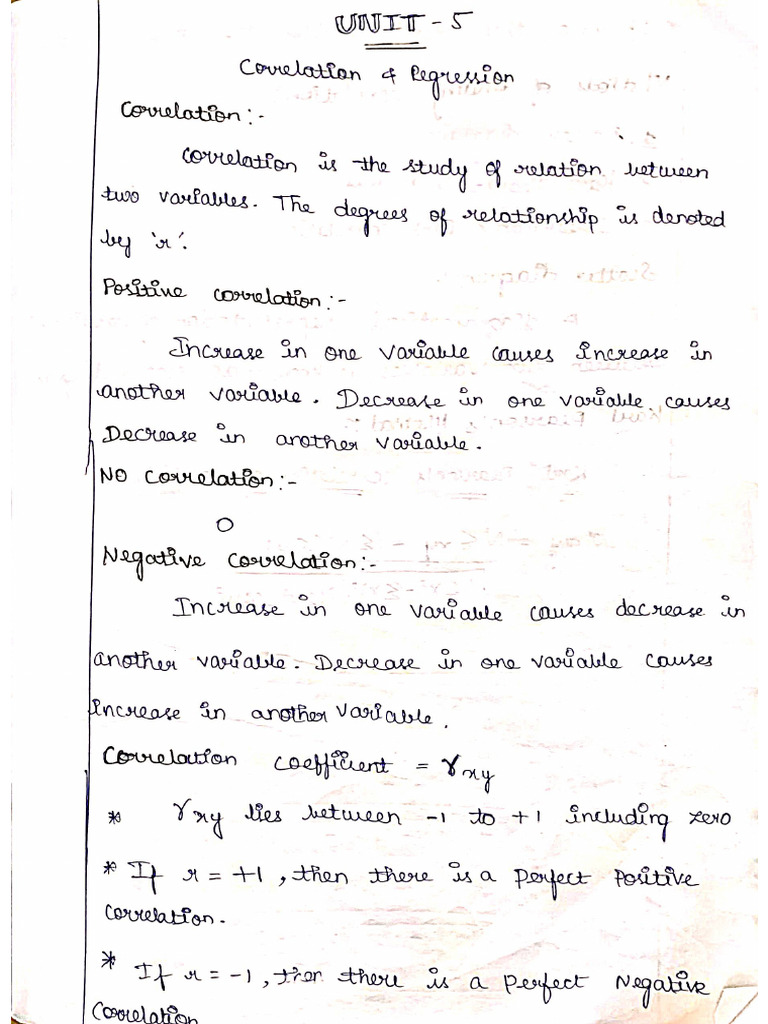 UNIT - 5
Correlation & Regression
Correlation:-
Correlation is the study of relation between
two variables. The degrees of relationship is denoted
by 'r'.
Positive correlation:-
Increase in one variable causes increase in
another variable. Decrease in one variable causes
Decrease in another variable.
NO Correlation:-
O
Negative Correlation:-
Increase in one variable causes decrease in
another variable. Decrease in one variable causes
increase in another variable.
Correlation coefficient = γxy
* γxy lies between -1 to +1 including zero
* If r = +1, then there is a perfect positive
correlation.
* If r = -1, then there is a perfect Negative
Correlation